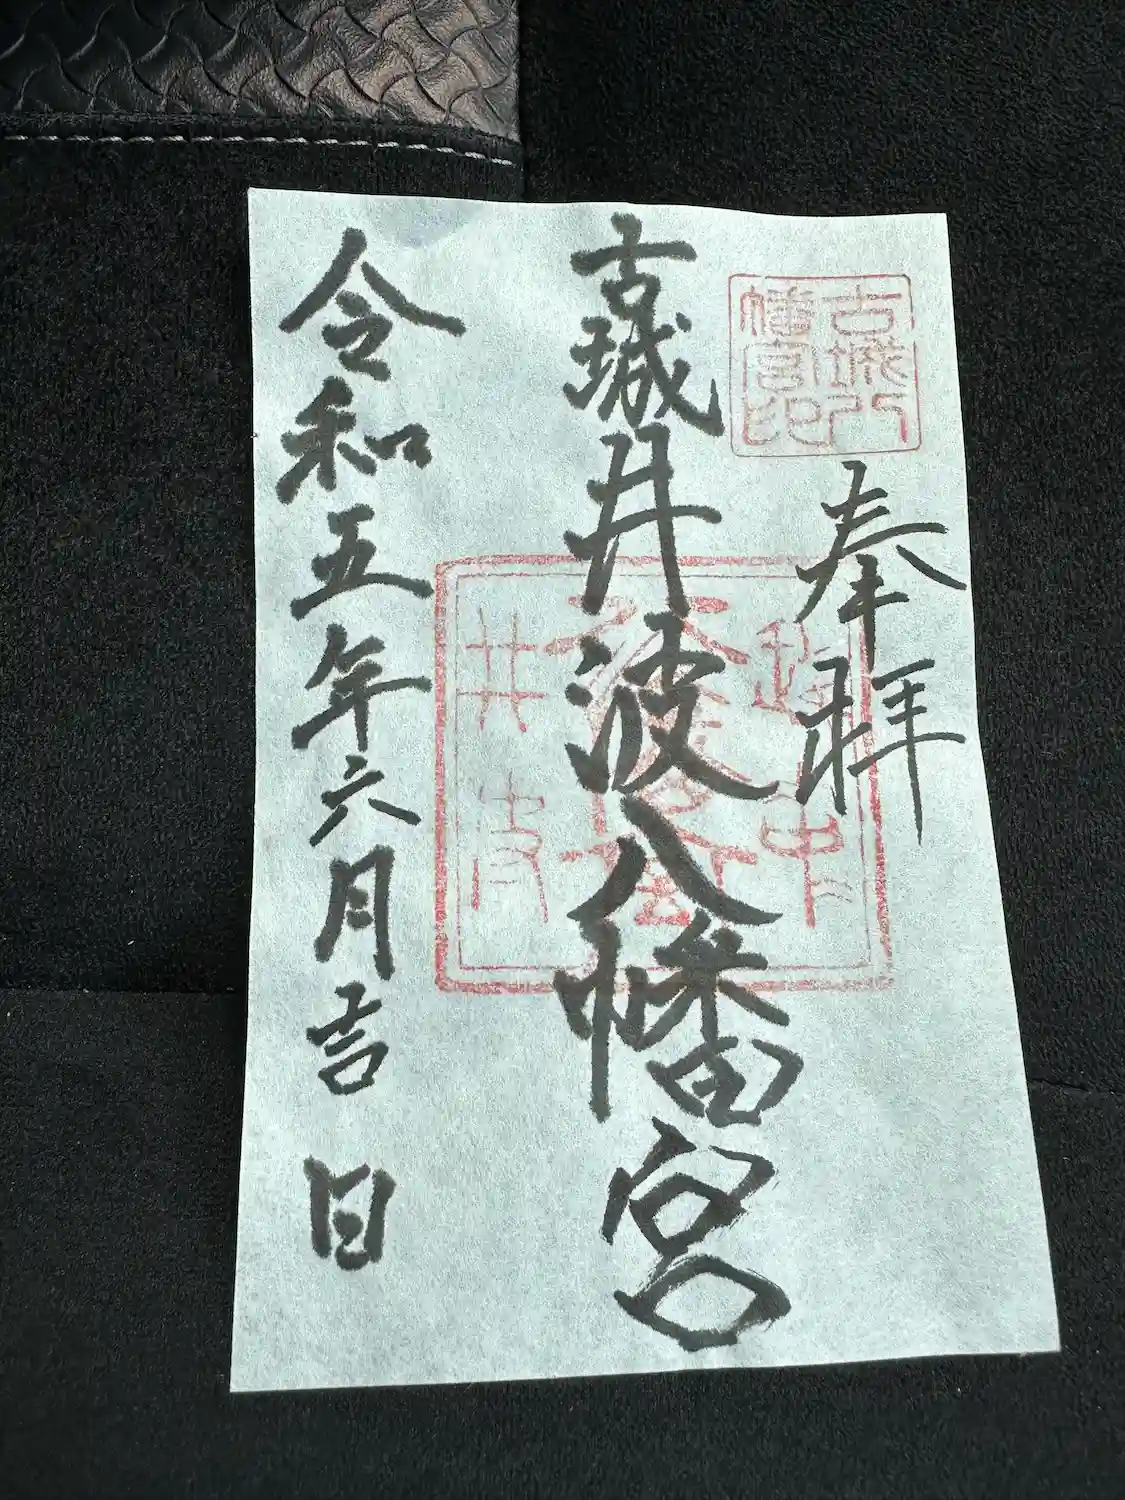 古城八
幡宮印
奉拝
越中
井波
古城井波八幡宮
令和五年六月吉日